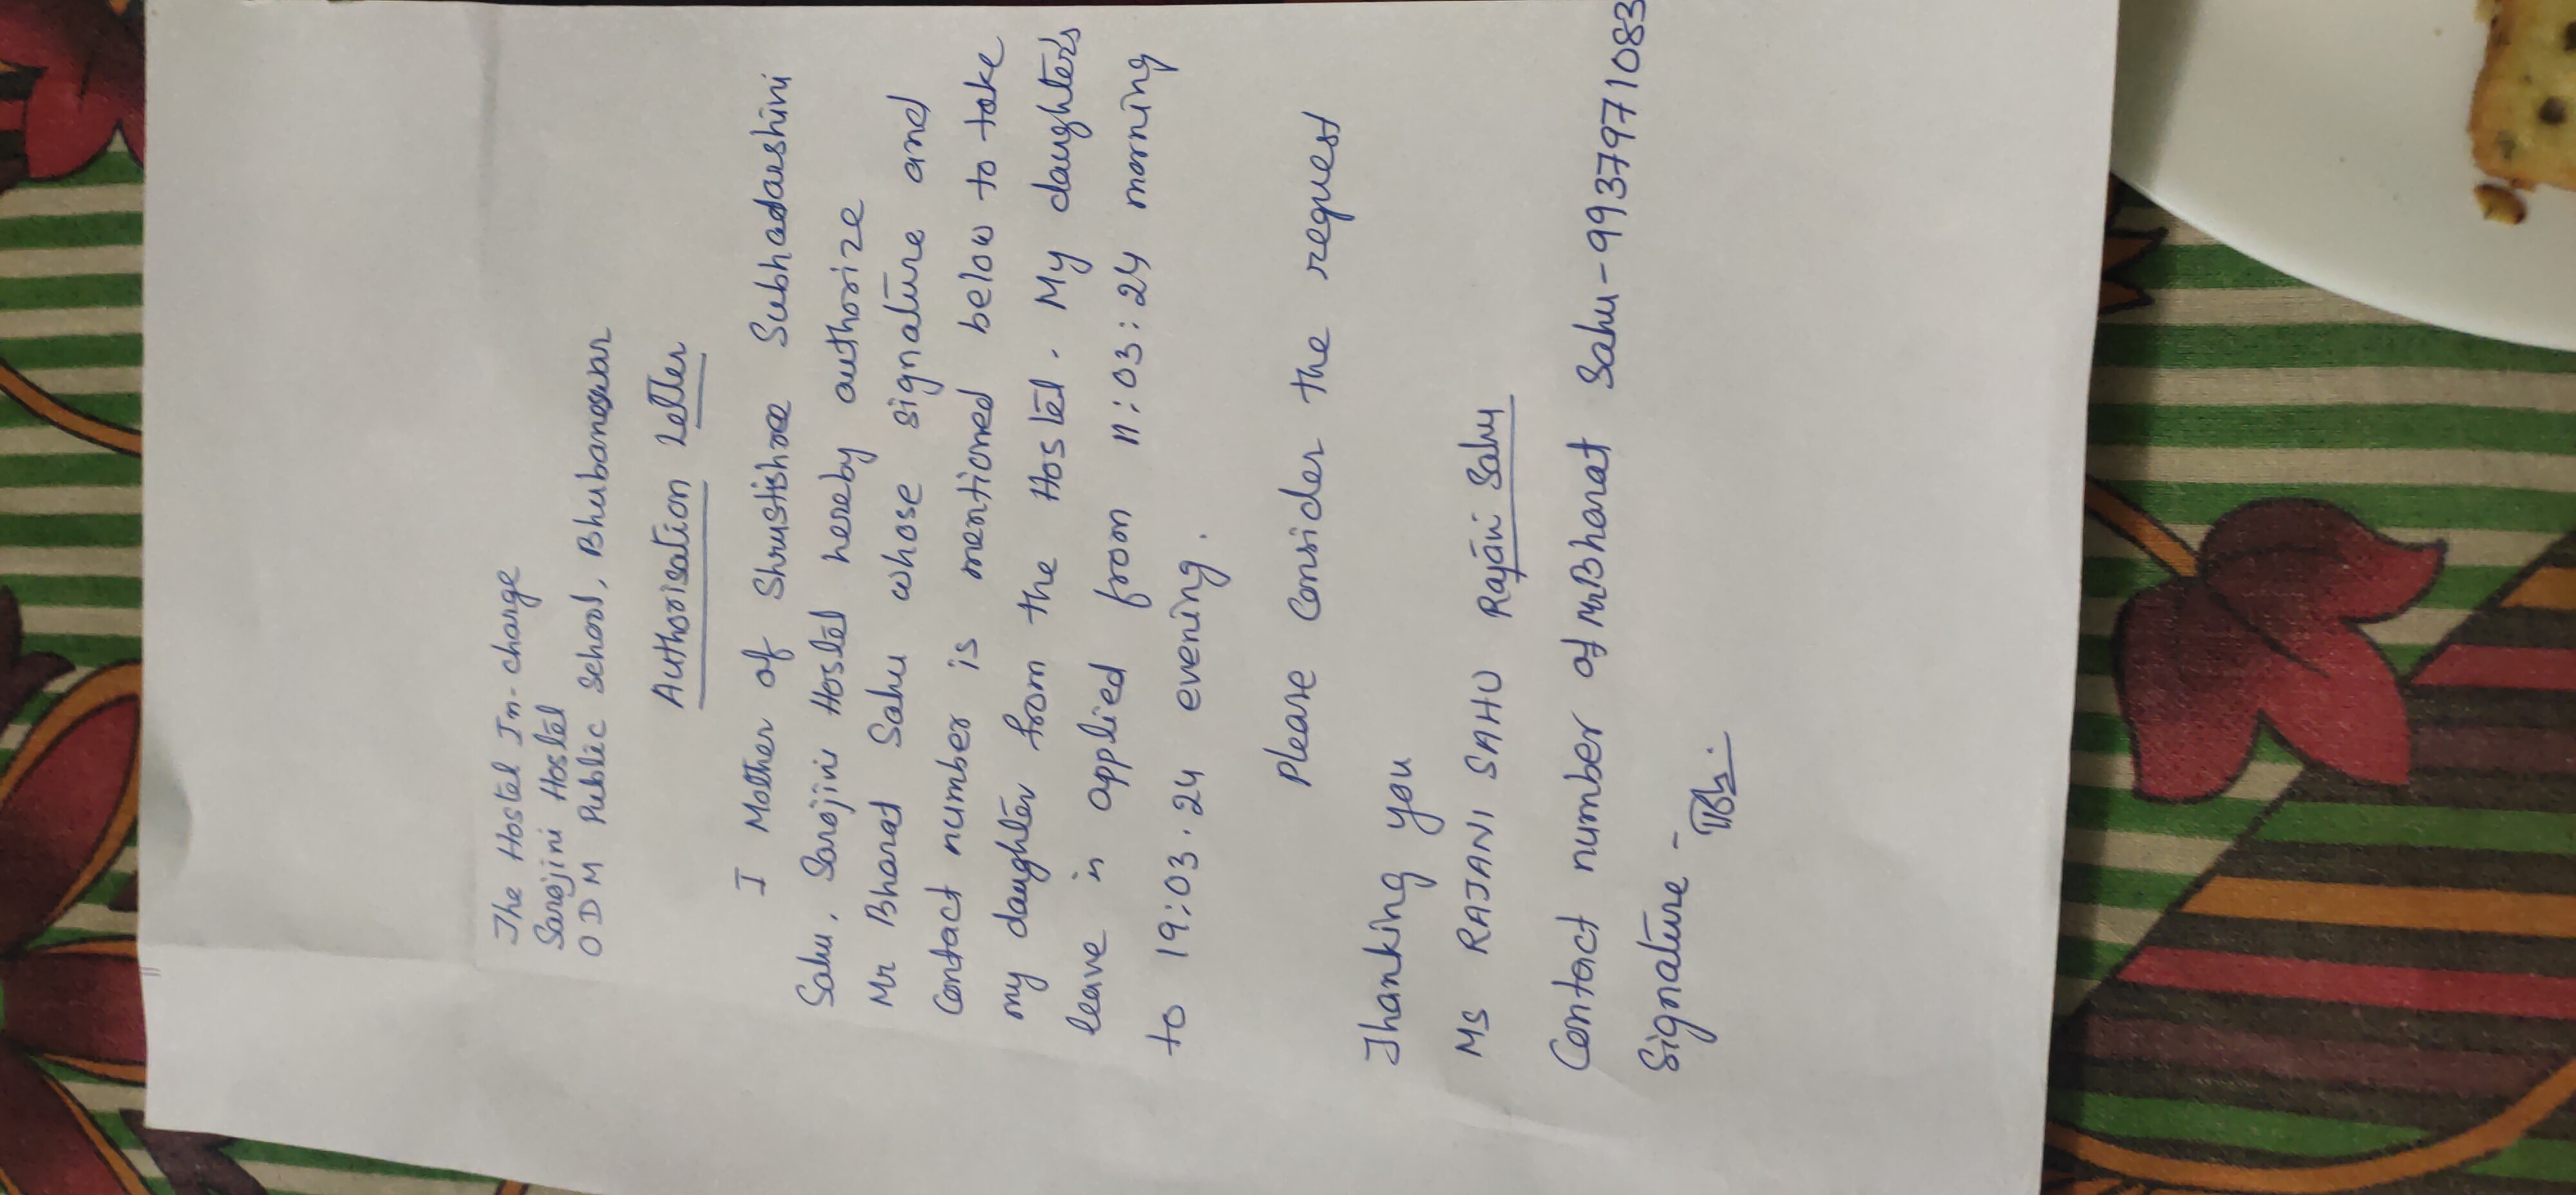 The Hostel In-charge
Sarojini Hostel
O D M Public School, Bhubaneswar
Authorisation Letter
I Mother of Shrustishree Subhadarshini
Sahu, Sarojini Hostel hereby authorize
Mr Bharat Sahu whose signature and
Contact number is mentioned below to take
my daughter from the Hostel. My daughter's
leave is applied from 11:03:24 morning
to 19:03.24 evening.
Please Consider the request
Thanking you
Ms RAJANI SAHU Rajani Sahu
Contact number of Mr Bharat Sahu-9937971083
Signature -